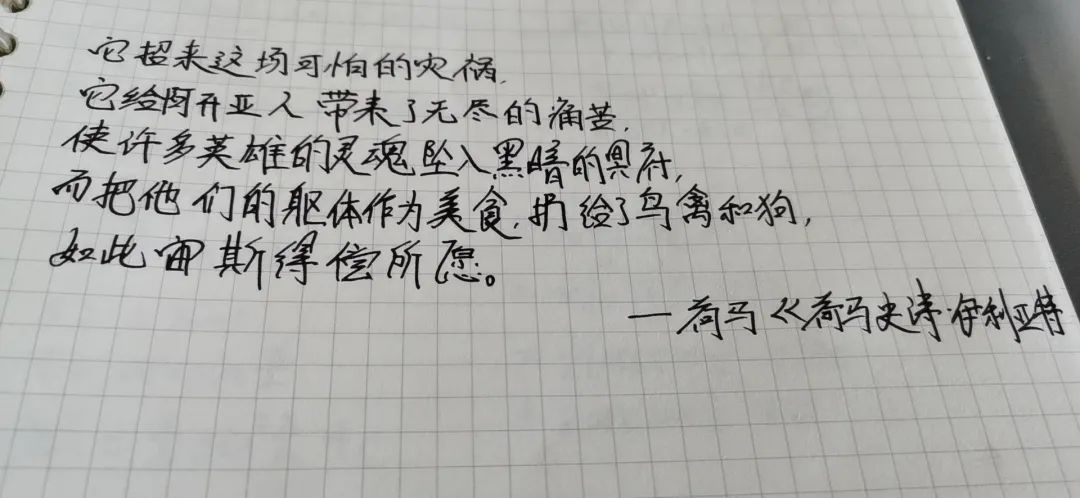 它招来这场可怕的灾祸,
它给阿开亚人带来了无尽的痛苦,
使许多英雄的灵魂坠入黑暗的冥府,
而把他们的躯体作为美食,扔给了鸟禽和狗,
如此宙斯得偿所愿。
—荷马《荷马史诗·伊利亚特